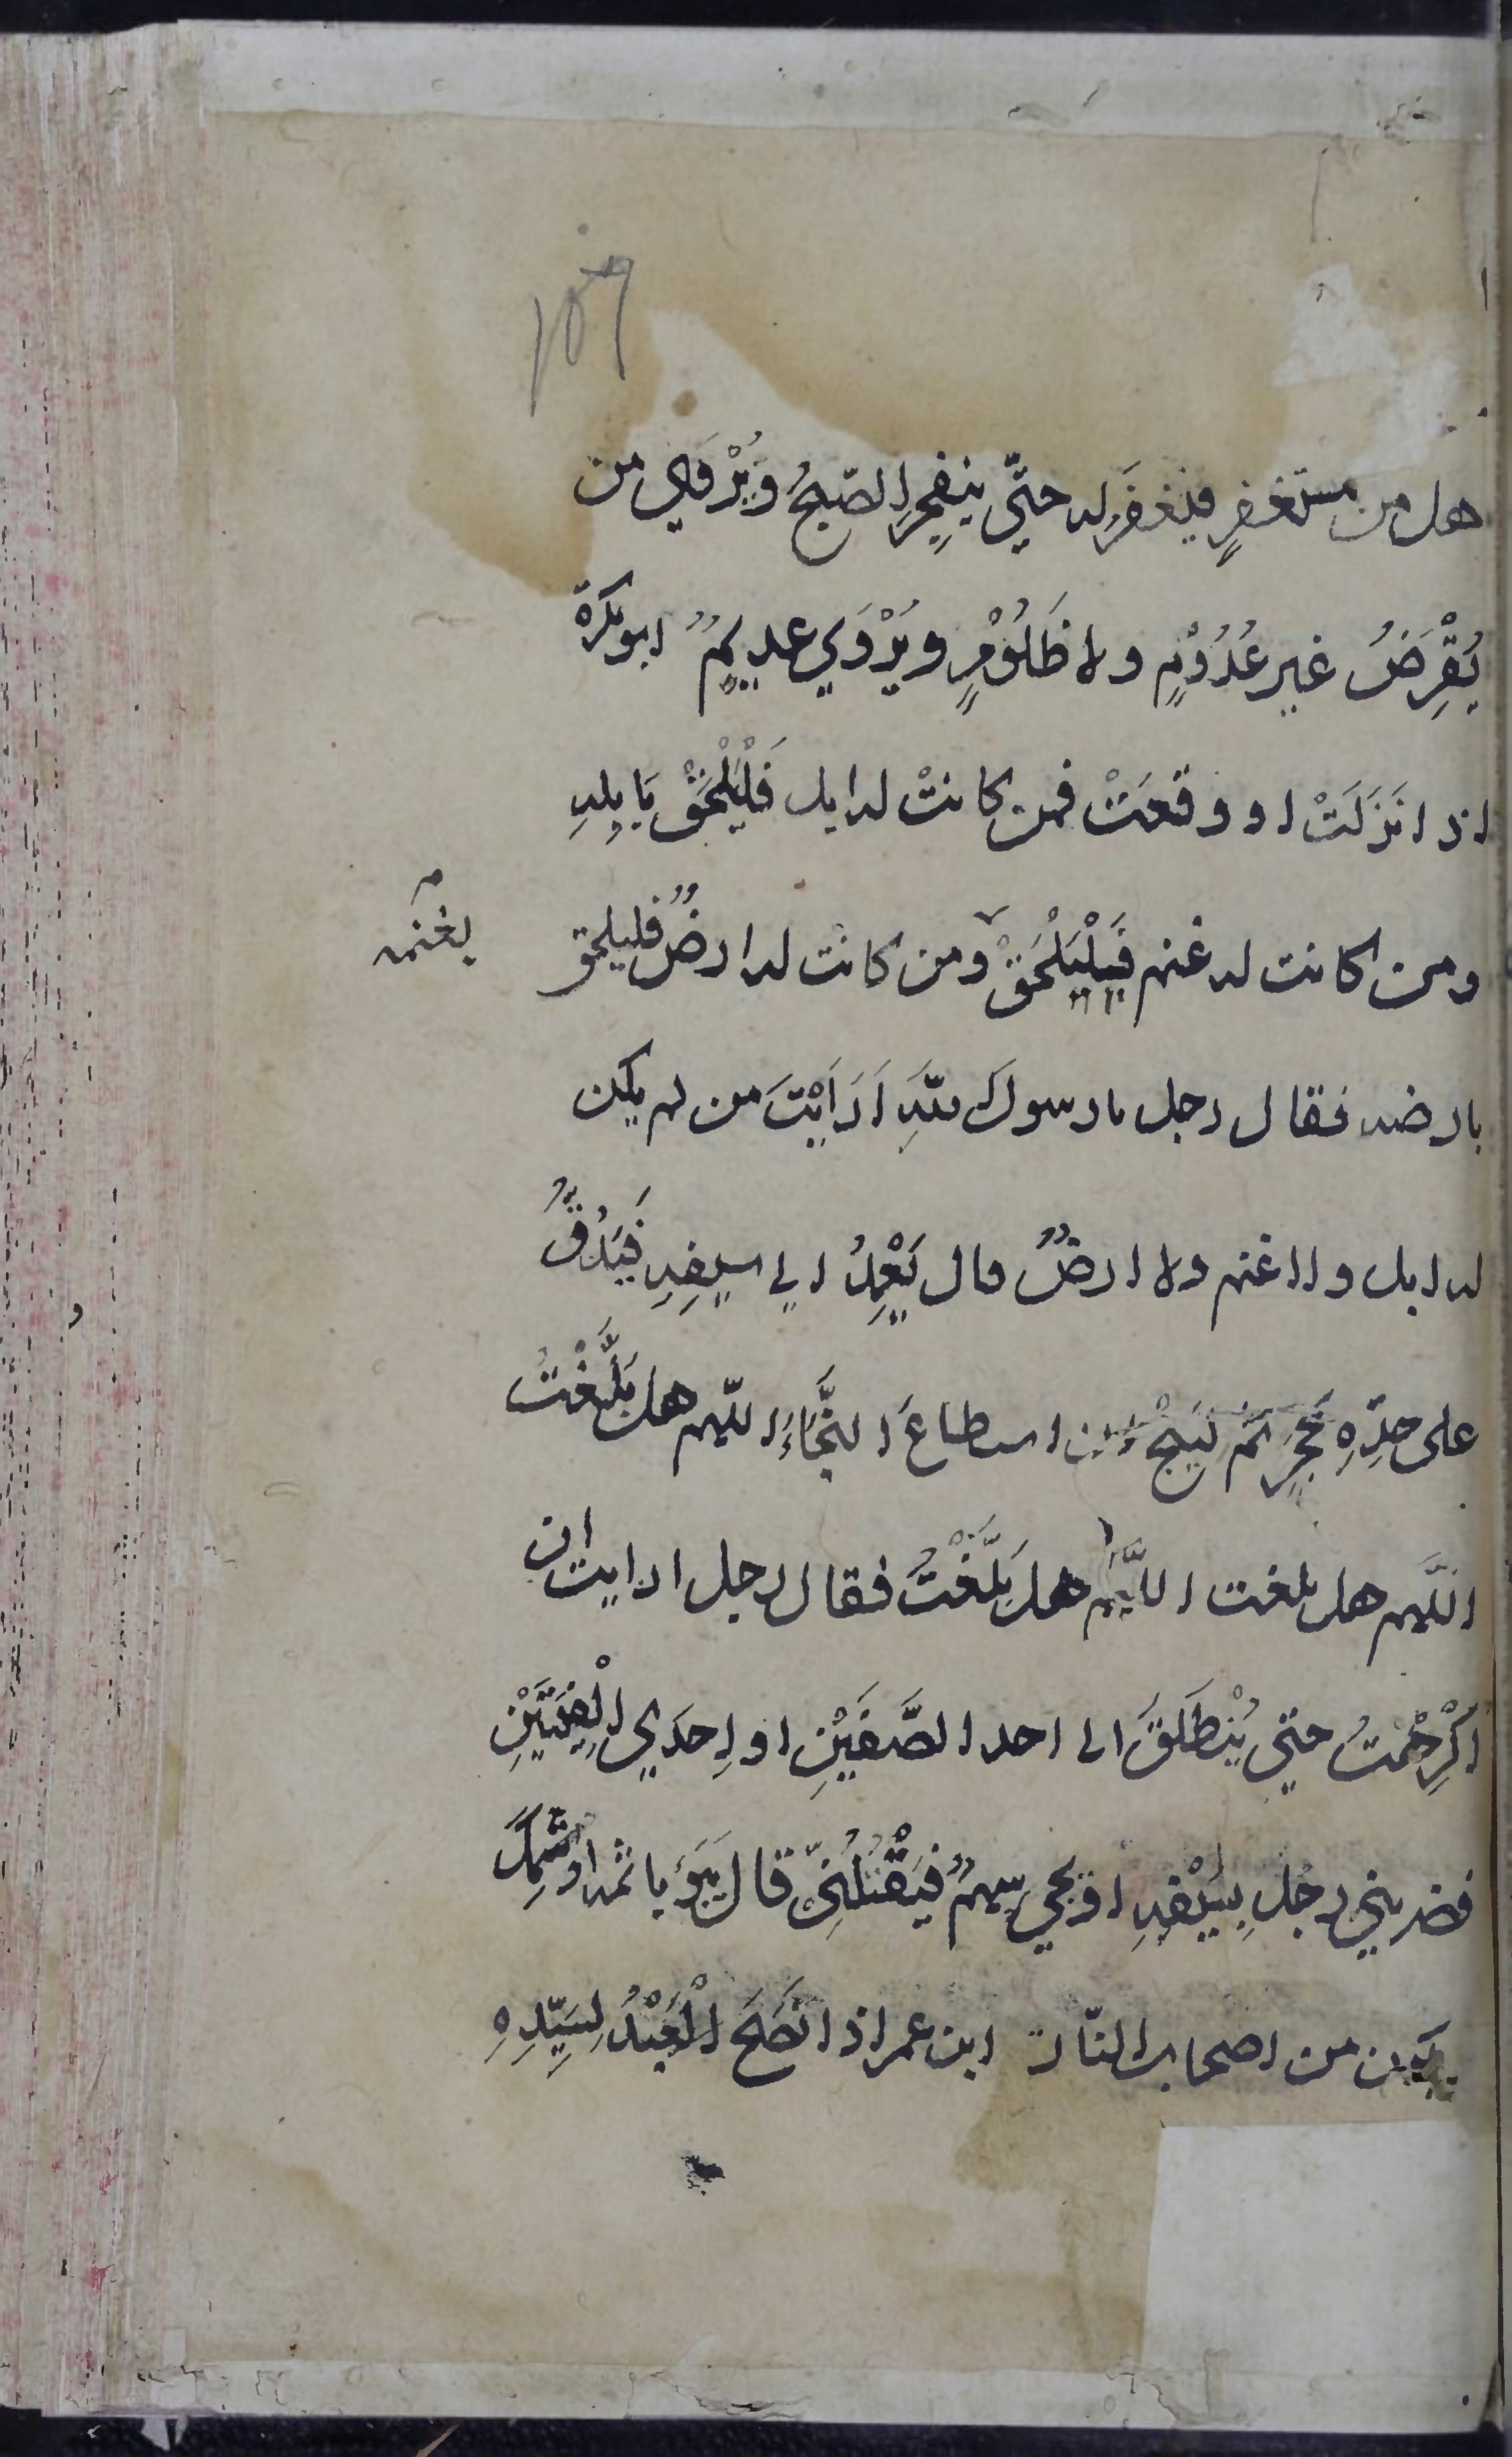 ١٥٩
هل من مستغفرٍ فيغفرَ له حتّي ينفجِرِ الصّبحُ وَيُرْوَي من
يُقْرِضُ غير عُدُوْمٍ ولا ظَلُوْمٍ ويُرْوَي عديمٍ ابو بكرة
اذا نَزَلَتْ او وقعَتْ فمن كانتْ له ابل فَلْيَلْحَقْ بِاِبِلِهِ
ومن كانت له غنم فَلْيَلْحَقْ ومن كانت له ارضٌ فليلحق
بغنمه
بارضه فقال رجل يا رسول اللهِ اَرَاَيْتَ من لم يكن
له ابل ولا غنم ولا ارضٌ قال يَعْمِدُ الي سيفِهِ فَيَدُقُّ
على حدِّهِ بحَجَرٍ ثم لينجُ ان استطاعَ النَّجَاءَ اللّهم هل بَلَّغْتُ
اللَّهم هل بلغت اللَّهم هل بَلَّغْتُ فقال رجل ارايت ان
اُكْرِهْتُ حتي يُنْطَلَقَ الى احد الصَّفَّيْنِ او اِحدَي الْفِئَتَيْنِ
فضربني رجل بِسَيْفِهِ او يجي سهمٌ فَيَقْتُلُنِيْ قال يَبُؤ باثمه واثمك
يكون من اصحاب النّار ابن عمر اذا نَصَحَ الْعَبْدُ لِسَيِّدِهِ